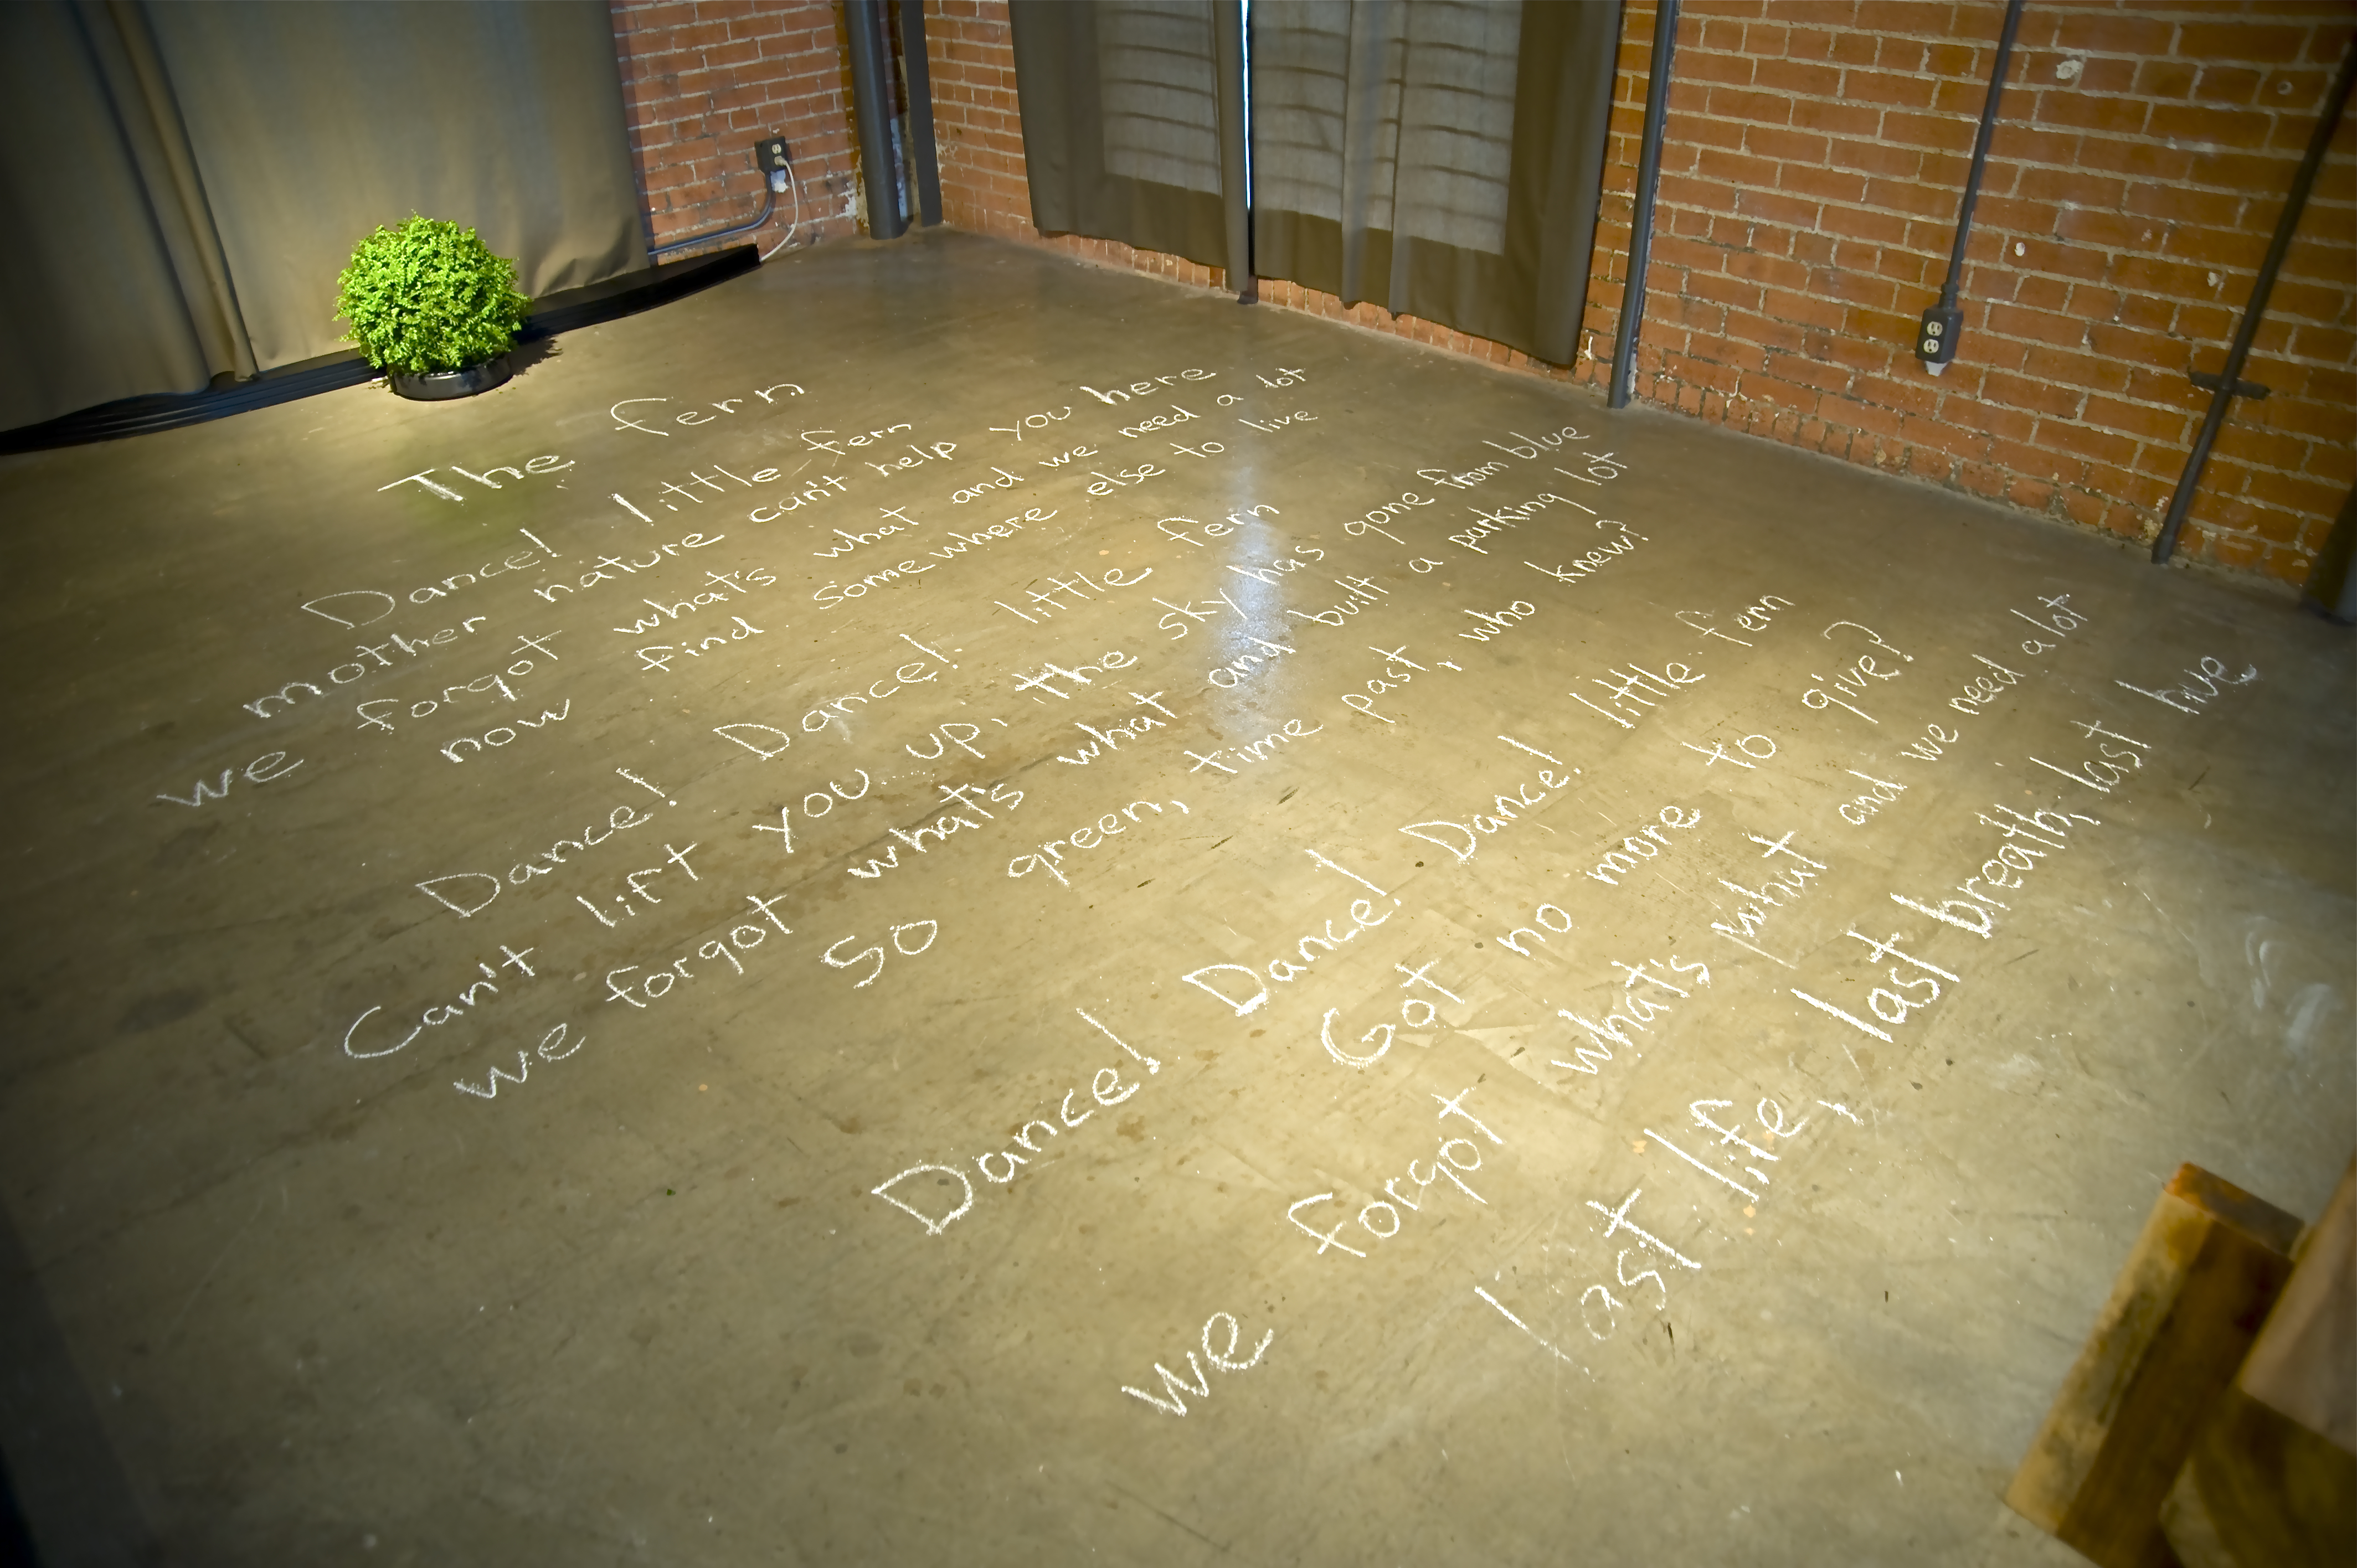 The fern
Dance! little fern
mother nature can't help you here
we forgot what's what and we need a lot
now find somewhere else to live
Dance! Dance! little fern
Can't lift you up, the sky has gone from blue
we forgot what's what and built a parking lot
So green, time past, who knew?
Dance! Dance! Dance! little fern
Got no more to give?
we forgot what's what and we need a lot
last life, last breath, last live